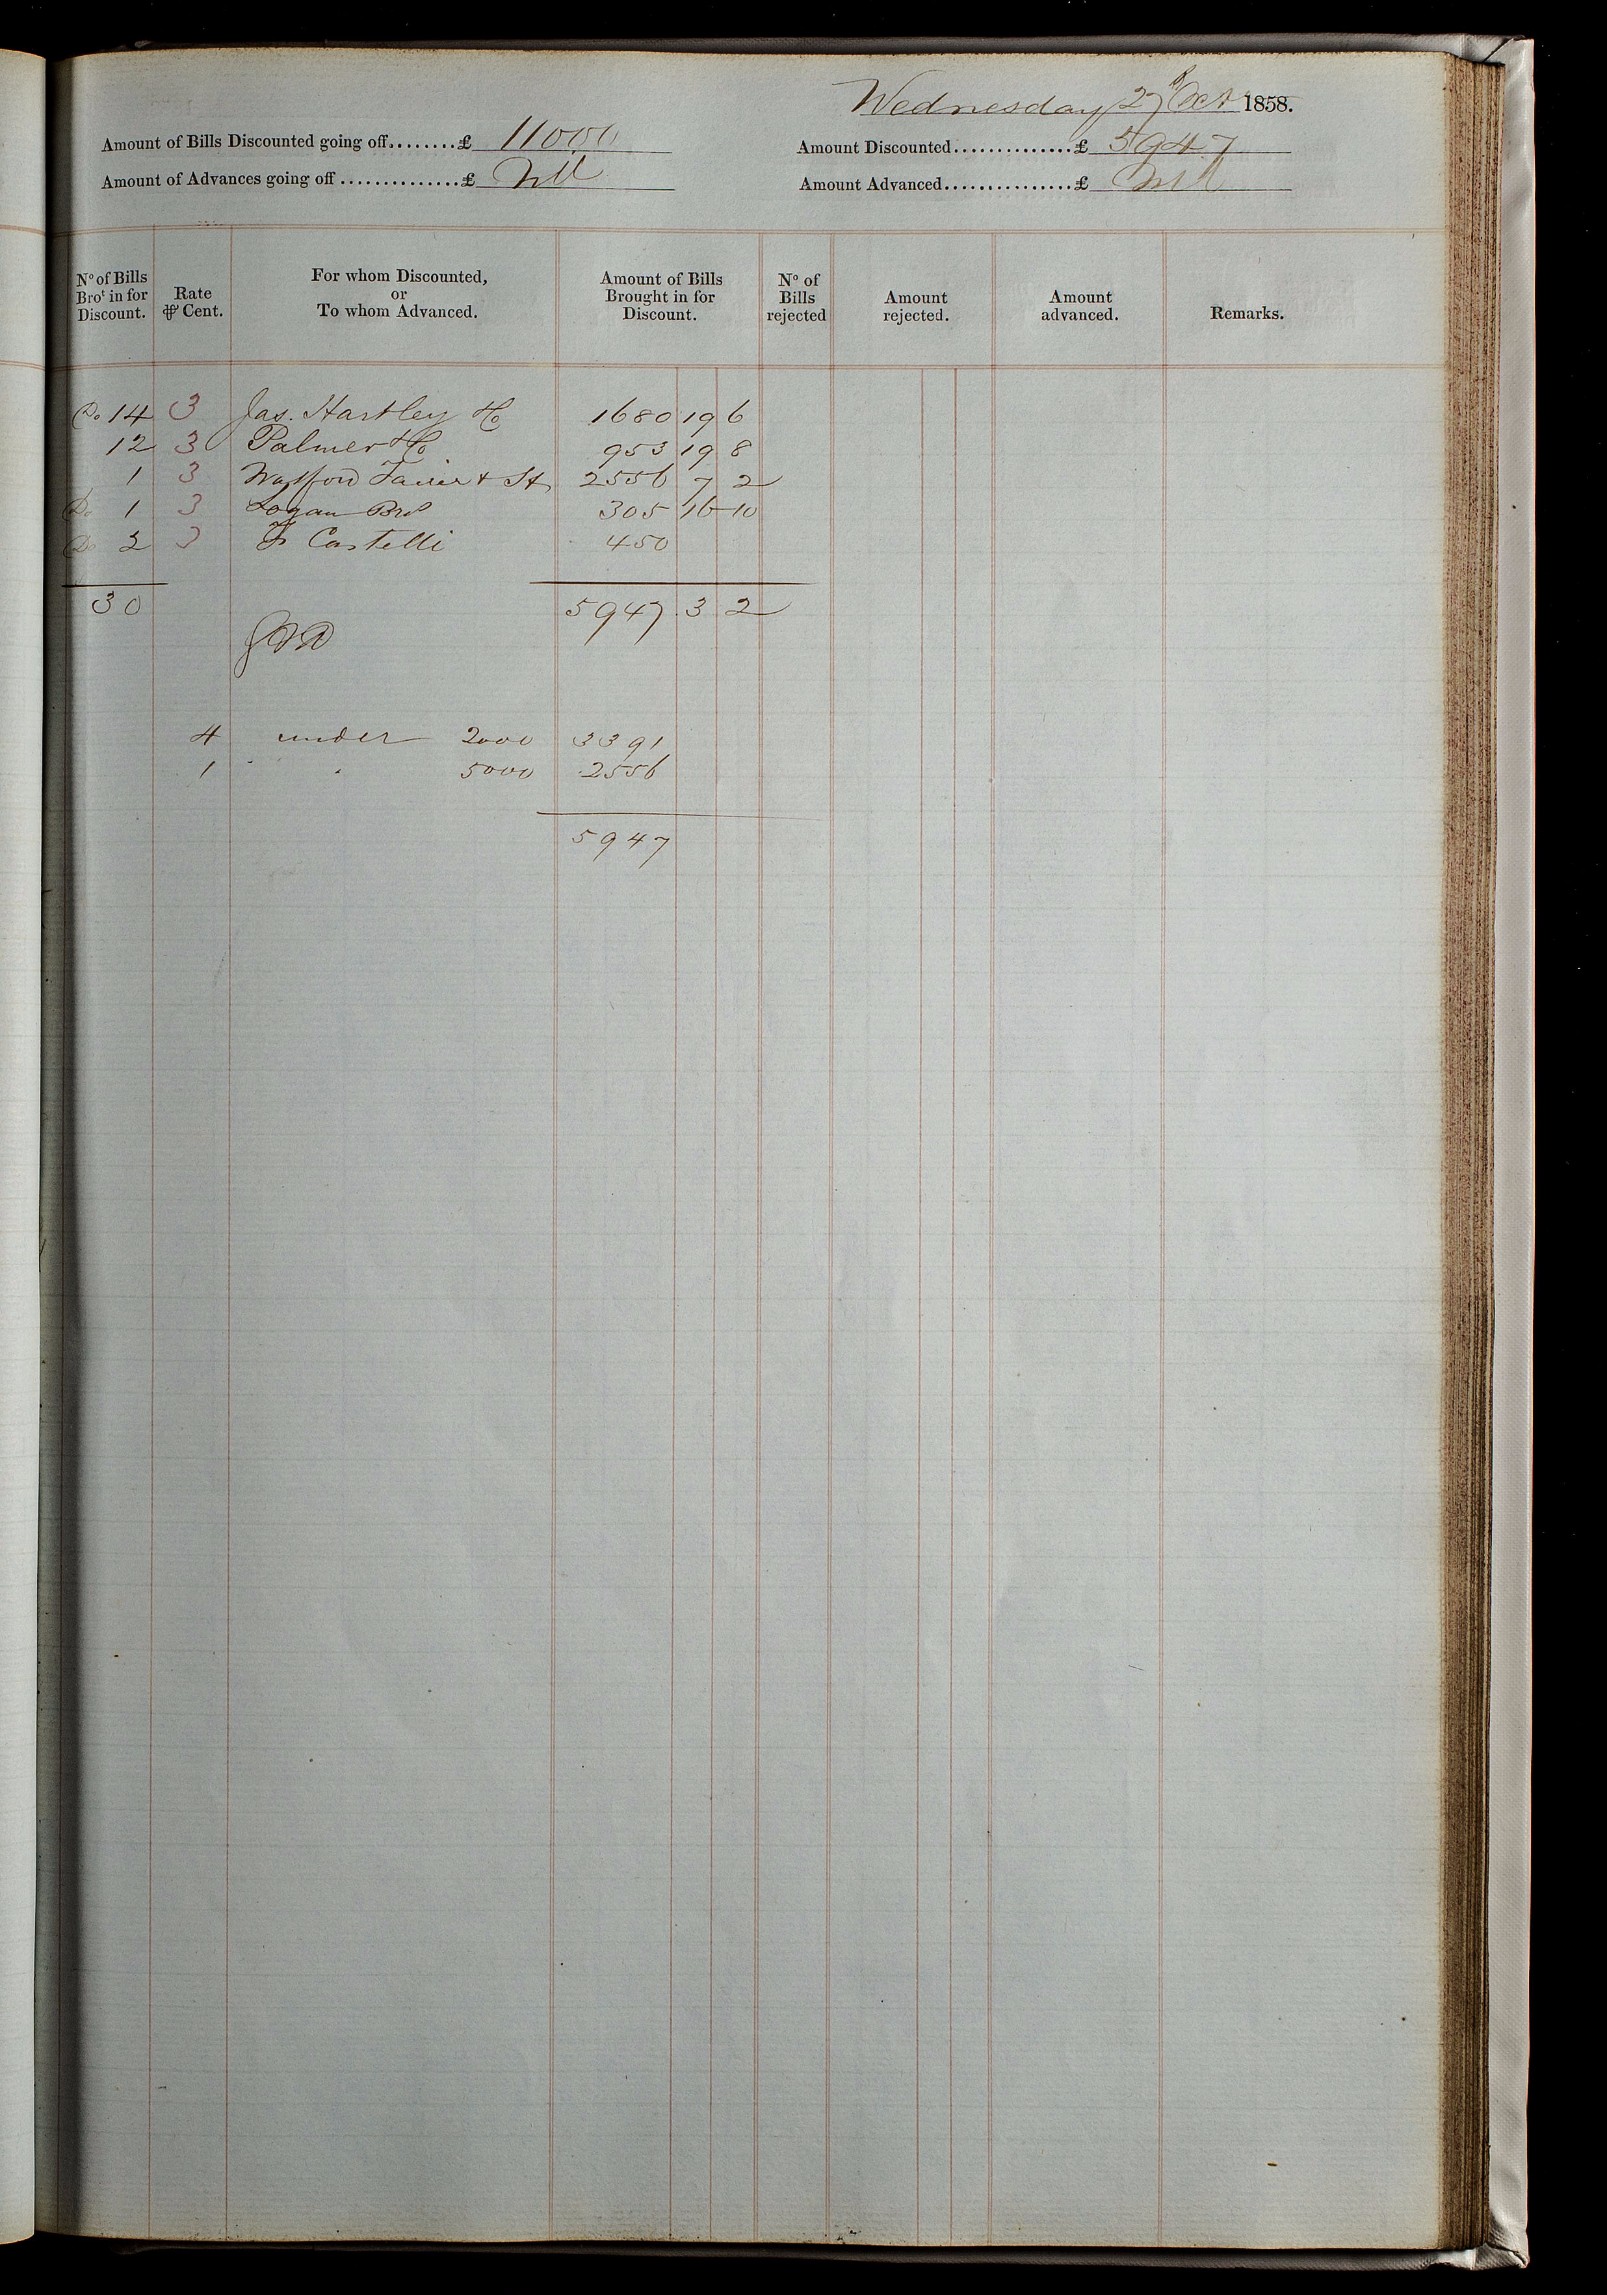 Wednesday 27th Oct 1858.
Amount of Bills Discounted going off........£ 11000 Amount Discounted..............£ 5947
Amount of Advances going off..............£ Nil Amount Advanced...............£ Nil
No of Bills Brot in for Discount. Rate ⅌ Cent. For whom Discounted, or To whom Advanced. Amount of Bills Brought in for Discount. No of Bills rejected Amount rejected. Amount advanced. Remarks.
Do 14 3 Jas. Hartley & Co 1680 19 6
12 3 Palmer & Co 953 19 8
1 3 & 2556 7 2
Do 1 3 Logan Bros 305 16 10
Do 2 3 Castelli 450
30 5947 3 2
4 under 2000 3391
1 " " 5000 2556
5947